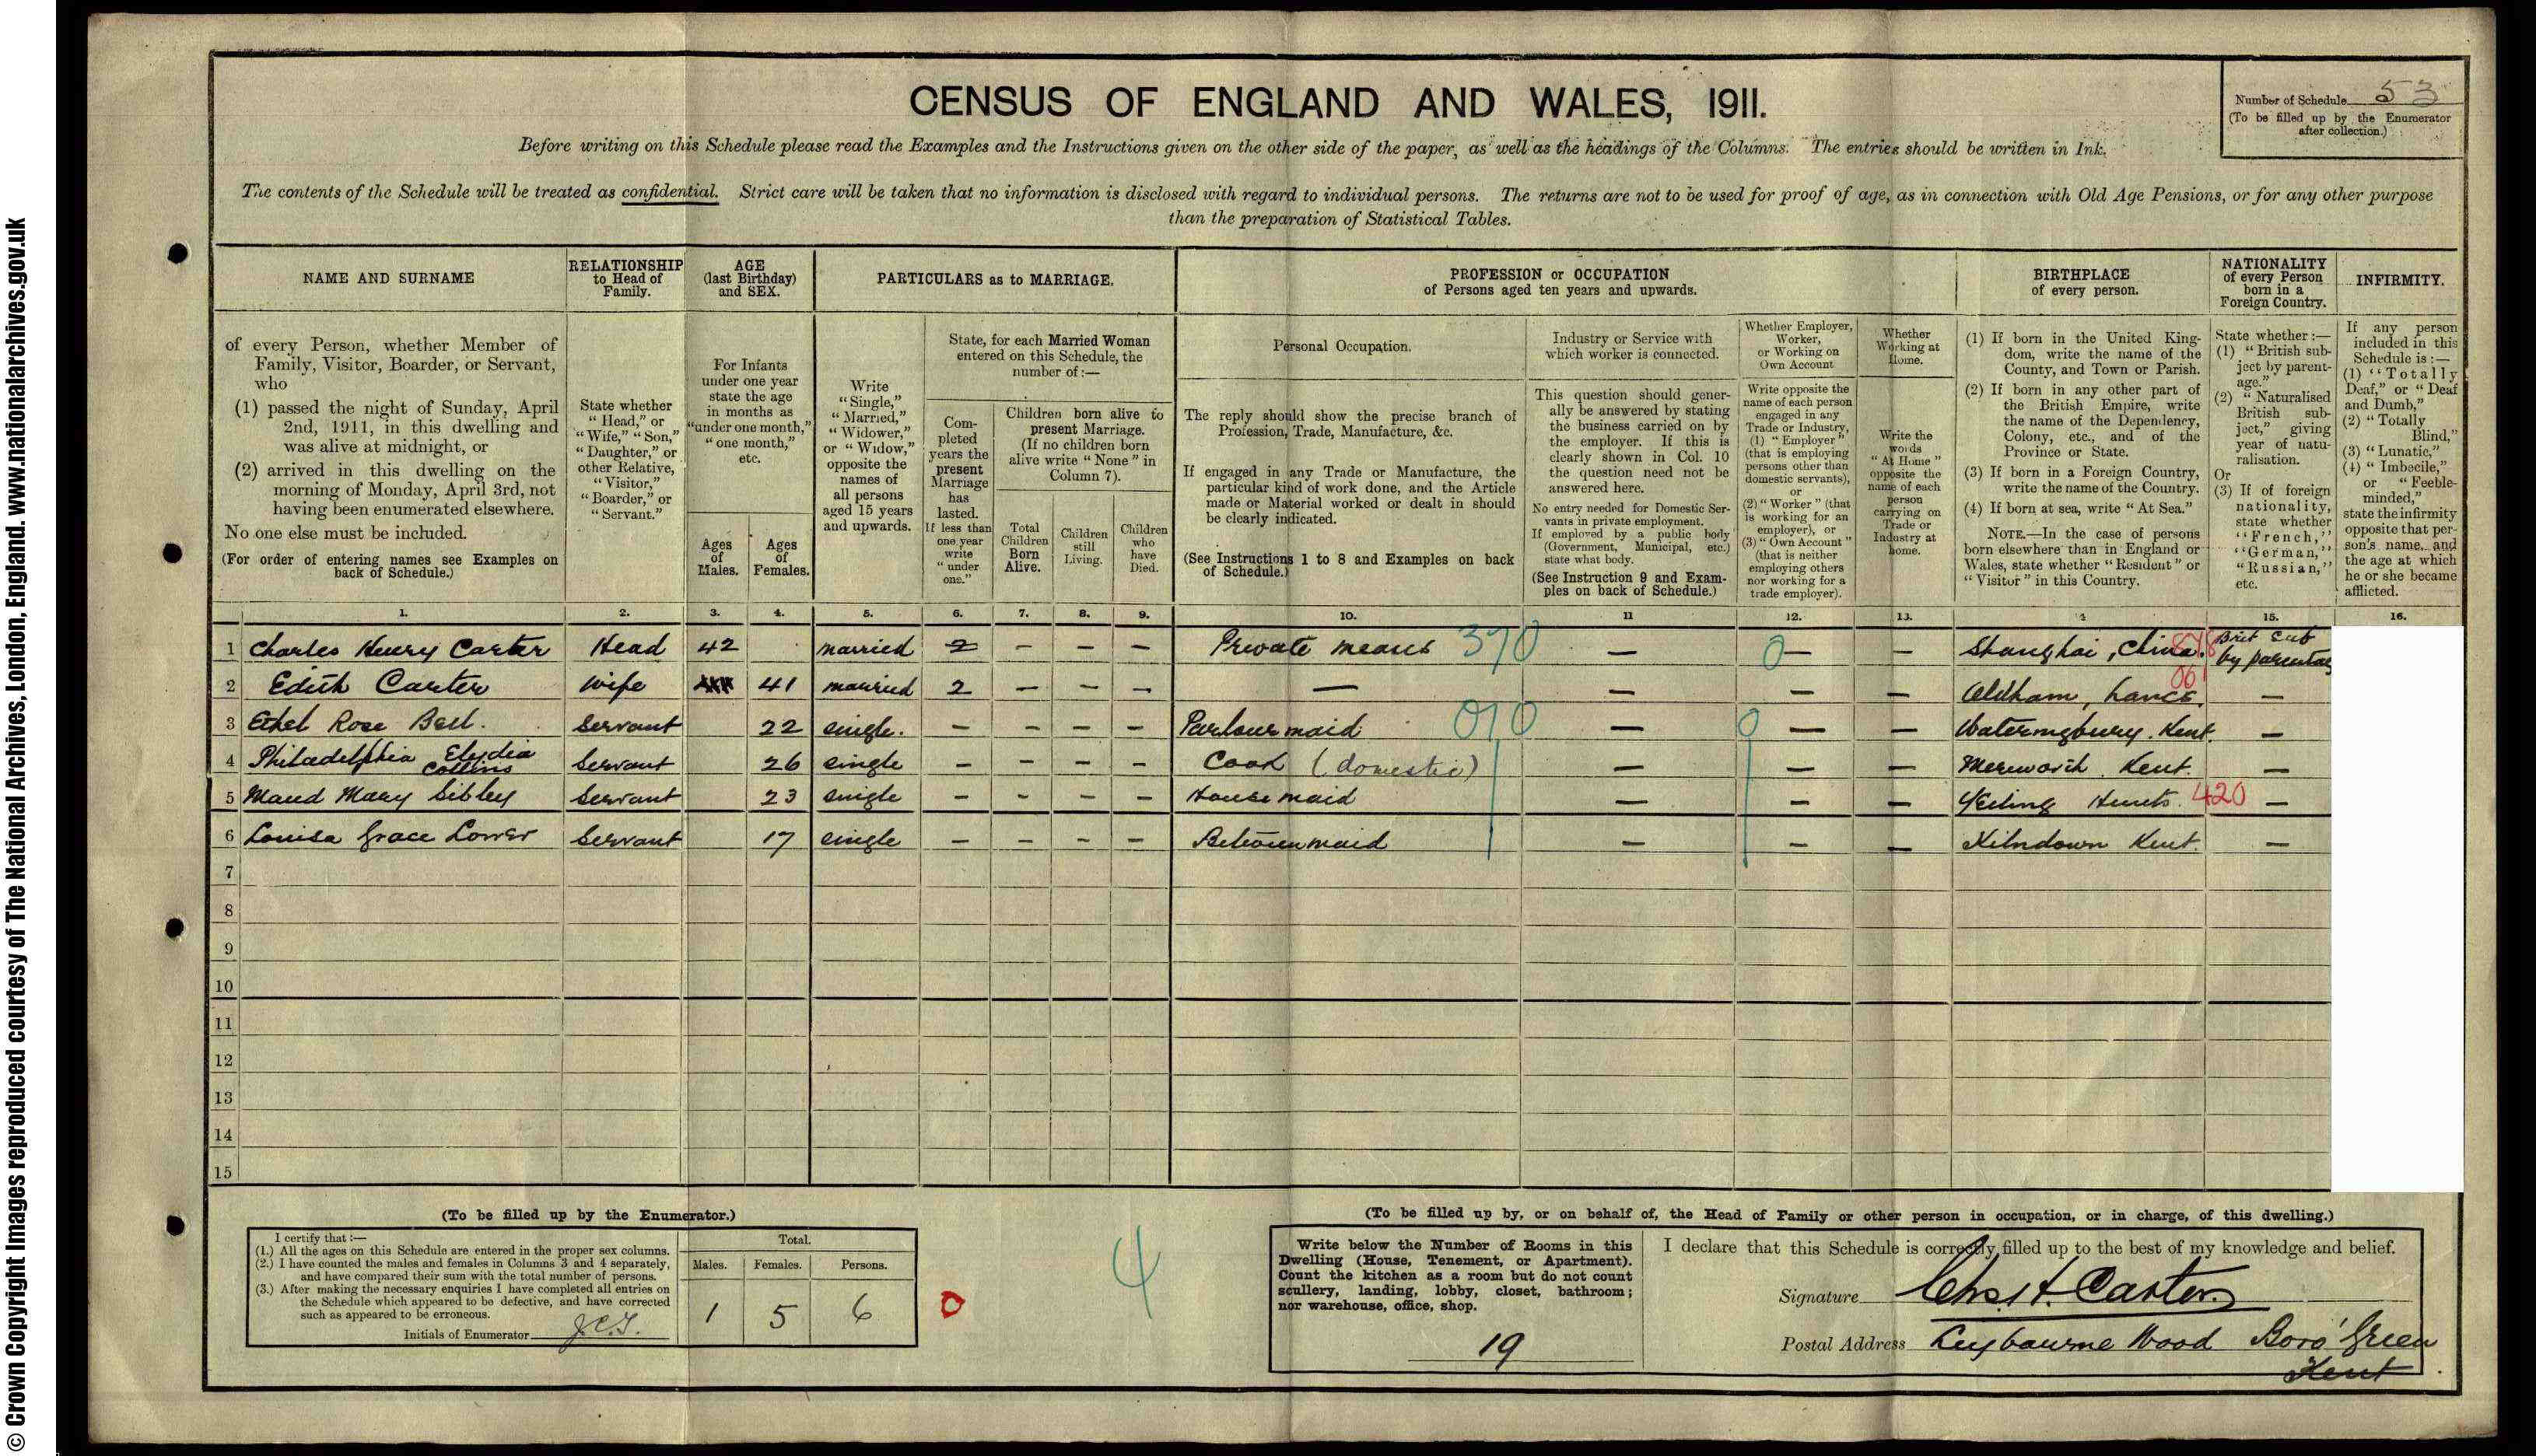 © Crown Copyright Images reproduced courtesy of The National Archives, London, England. www.nationalarchives.gov.uk
CENSUS OF ENGLAND AND WALES, 1911.
Number of Schedule 53
(To be filled up by the Enumerator
after collection.)
Before writing on this Schedule please read the Examples and the Instructions given on the other side of the paper, as well as the headings of the Columns. The entries should be written in Ink.
The contents of the Schedule will be treated as confidential. Strict care will be taken that no information is disclosed with regard to individual persons. The returns are not to be used for proof of age, as in connection with Old Age Pensions, or for any other purpose
than the preparation of Statistical Tables.
NAME AND SURNAME
of every Person, whether Member of
Family, Visitor, Boarder, or Servant,
who
(1) passed the night of Sunday, April
2nd, 1911, in this dwelling and
was alive at midnight, or
(2) arrived in this dwelling on the
morning of Monday, April 3rd, not
having been enumerated elsewhere.
No one else must be included.
(For order of entering names see Examples on
back of Schedule.)
RELATIONSHIP
to Head of
Family.
State whether
"Head," or
"Wife," "Son,"
"Daughter," or
other Relative,
"Visitor,"
"Boarder," or
"Servant."
AGE
(last Birthday)
and SEX.
For Infants
under one year
state the age
in months as
"under one month,"
"one month,"
etc.
Ages
of
Males.
Ages
of
Females.
PARTICULARS as to MARRIAGE.
Write
"Single,"
"Married,"
"Widower,"
or "Widow,"
opposite the
names of
all persons
aged 15 years
and upwards.
State, for each Married Woman
entered on this Schedule, the
number of:—
Com-
pleted
years the
present
Marriage
has
lasted.
If less than
one year
write
"under
one."
Children born alive to
present Marriage.
(If no children born
alive write "None" in
Column 7).
Total
Children
Born
Alive.
Children
still
Living.
Children
who
have
Died.
PROFESSION or OCCUPATION
of Persons aged ten years and upwards.
Personal Occupation.
The reply should show the precise branch of
Profession, Trade, Manufacture, &c.
If engaged in any Trade or Manufacture, the
particular kind of work done, and the Article
made or Material worked or dealt in should
be clearly indicated.
(See Instructions 1 to 8 and Examples on back
of Schedule.)
Industry or Service with
which worker is connected.
This question should gener-
ally be answered by stating
the business carried on by
the employer. If this is
clearly shown in Col. 10
the question need not be
answered here.
No entry needed for Domestic Ser-
vants in private employment.
If employed by a public body
(Government, Municipal, etc.)
state what body.
(See Instruction 9 and Exam-
ples on back of Schedule.)
Whether Employer,
Worker,
or Working on
Own Account
Write opposite the
name of each person
engaged in any
Trade or Industry,
(1) "Employer"
(that is employing
persons other than
domestic servants),
or
(2) "Worker" (that
is working for an
employer), or
(3) "Own Account"
(that is neither
employing others
nor working for a
trade employer).
Whether
Working at
Home.
Write the
words
"At Home"
opposite the
name of each
person
carrying on
Trade or
Industry at
home.
BIRTHPLACE
of every person.
(1) If born in the United King-
dom, write the name of the
County, and Town or Parish.
(2) If born in any other part of
the British Empire, write
the name of the Dependency,
Colony, etc., and of the
Province or State.
(3) If born in a Foreign Country,
write the name of the Country.
(4) If born at sea, write "At Sea."
NOTE.—In the case of persons
born elsewhere than in England or
Wales, state whether "Resident" or
"Visitor" in this Country.
NATIONALITY
of every Person
born in a
Foreign Country.
State whether:—
(1) "British sub-
ject by parent-
age."
(2) "Naturalised
British sub-
ject," giving
year of natu-
ralisation.
Or
(3) If of foreign
nationality,
state whether
"French,"
"German,"
"Russian,"
etc.
INFIRMITY.
If any person
included in this
Schedule is:—
(1) "Totally
Deaf," or "Deaf
and Dumb,"
(2) "Totally
Blind,"
(3) "Lunatic,"
(4) "Imbecile,"
or "Feeble-
minded,"
state the infirmity
opposite that per-
son's name, and
the age at which
he or she became
afflicted.
1. 2. 3. 4. 5. 6. 7. 8. 9. 10. 11 12. 13. 4 15. 16.
1 Charles Henry Carter Head 42 married 2 — — — Private means 370 — 0 — — Shanghai, China. Brit Sub
by parentage
2 Edith Carter wife 41 married 2 — — — — — — — Oldham, Lancs. —
3 Ethel Rose Bell. Servant 22 single. — — — — Parlourmaid 010 — 0 — — Wateringbury. Kent. —
4 Philadelphia Elydia
Collins Servant 26 single — — — — Cook (domestic) — — — Mereworth Kent. —
5 Maud Mary Sibley Servant 23 single — — — — Housemaid — — — Yelling Hunts. 420 —
6 Louisa Grace Lower Servant 17 single — — — — Betweenmaid — — — Kilndown Kent. —
7
8
9
10
11
12
13
14
15
(To be filled up by the Enumerator.)
I certify that:—
(1.) All the ages on this Schedule are entered in the proper sex columns.
(2.) I have counted the males and females in Columns 3 and 4 separately,
and have compared their sum with the total number of persons.
(3.) After making the necessary enquiries I have completed all entries on
the Schedule which appeared to be defective, and have corrected
such as appeared to be erroneous.
Initials of Enumerator
Total.
Males. Females. Persons.
1 5 6
0
4
(To be filled up by, or on behalf of, the Head of Family or other person in occupation, or in charge, of this dwelling.)
Write below the Number of Rooms in this
Dwelling (House, Tenement, or Apartment).
Count the kitchen as a room but do not count
scullery, landing, lobby, closet, bathroom;
nor warehouse, office, shop.
19
I declare that this Schedule is correctly filled up to the best of my knowledge and belief.
Signature Chas H. Carter
Postal Address Leybourne Wood Boro' Green
Kent